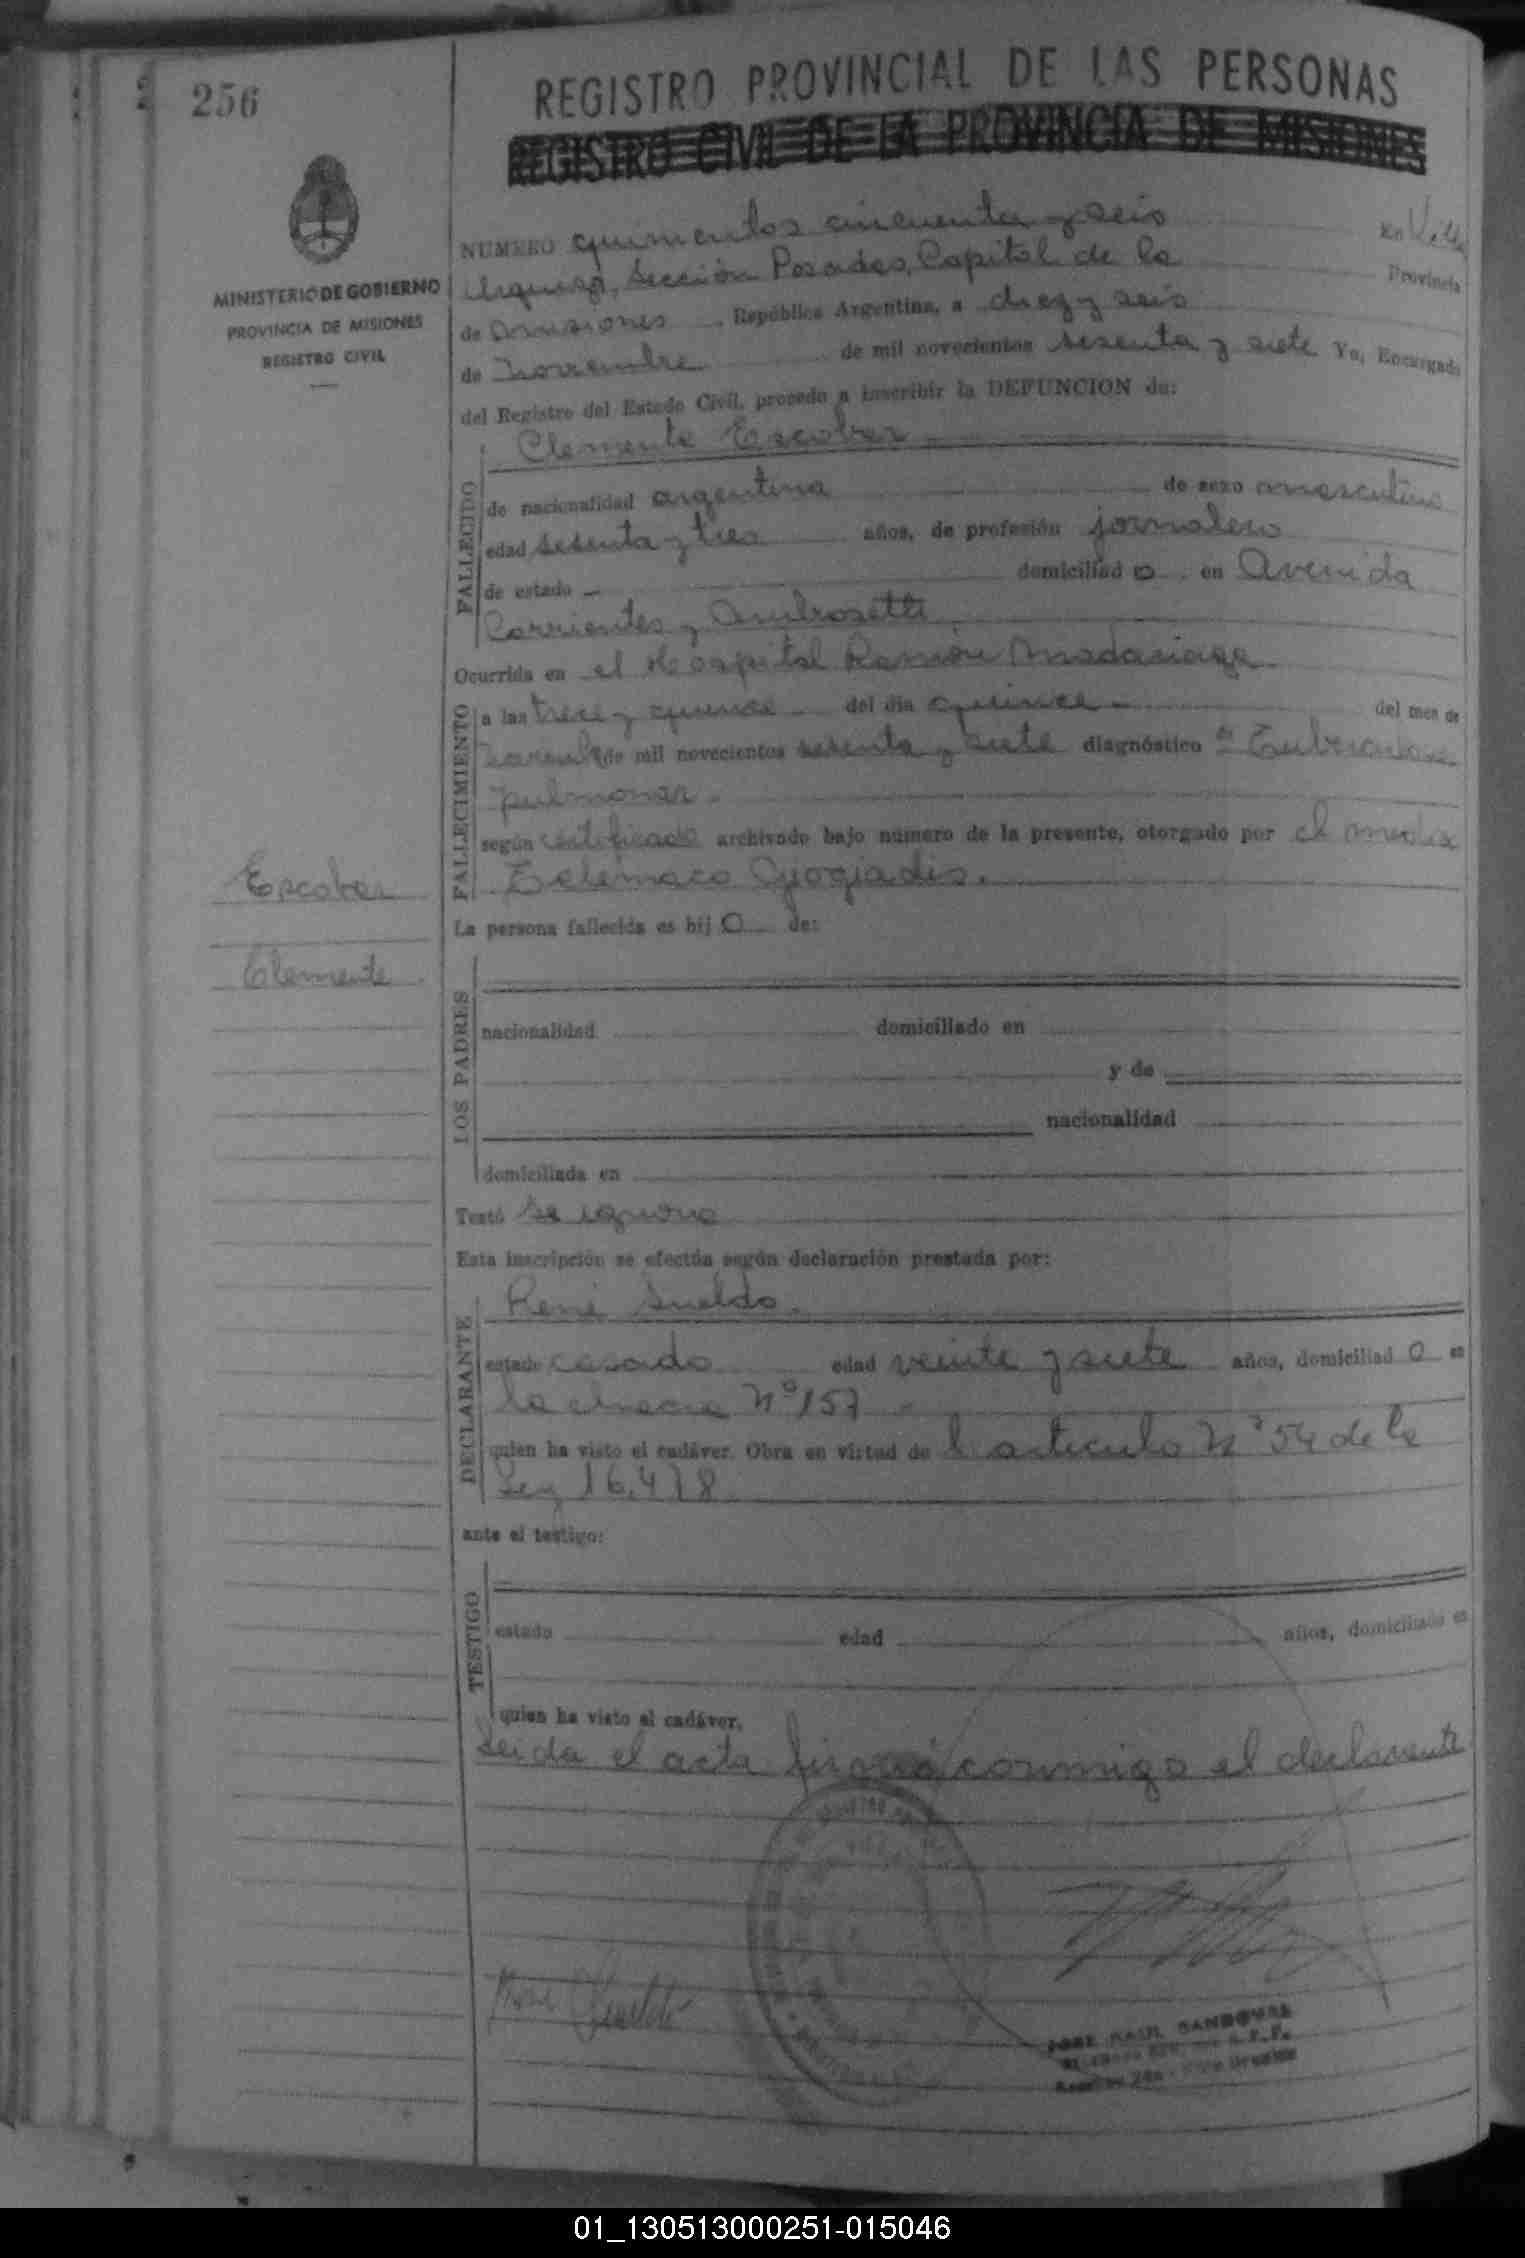 256
REGISTRO PROVINCIAL DE LAS PERSONAS
REGISTRO CIVIL DE LA PROVINCIA DE MISIONES
MINISTERIO DE GOBIERNO
PROVINCIA DE MISIONES
REGISTRO CIVIL
NUMERO quinientos cincuenta y seis En Villa
Urquiza, Sección Posadas, Capital de la Provincia
de Misiones, República Argentina, a diez y seis
de Noviembre de mil novecientos sesenta y siete Yo, Encargado
del Registro del Estado Civil, procedo a inscribir la DEFUNCION de:
FALLECIDO
Clemente Escobar
de nacionalidad argentina de sexo masculino
edad sesenta y tres años, de profesión jornalero
de estado — domiciliad o en Avenida
Corrientes y Ambrosetti
Ocurrida en el Hospital Ramón Madariaga
FALLECIMIENTO
a las trece y quince del día quince del mes de
Noviembre de mil novecientos sesenta y siete diagnóstico Tuberculosis
pulmonar.
según certificado archivado bajo número de la presente, otorgado por el medico
Telemaco
Escobar
Clemente
La persona fallecida es hij o de:
LOS PADRES
nacionalidad domiciliado en
y de
nacionalidad
domiciliada en
Testó se ignora
Esta inscripción se efectúa según declaración prestada por:
DECLARANTE
René Sueldo.
estado casado edad veinte y siete años, domiciliad o en
la chacra Nº 157
quien ha visto el cadáver. Obra en virtud de l articulo Nº 54 de la
Ley 16.478
ante el testigo:
TESTIGO
estado edad años, domiciliado en
quien ha visto el cadáver.
Leida el acta firmó conmigo el declarante
René Sueldo
JOSE RAUL SANDOVAL
01_130513000251-015046